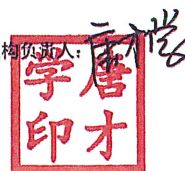 构负责人：唐才学
唐才
学印